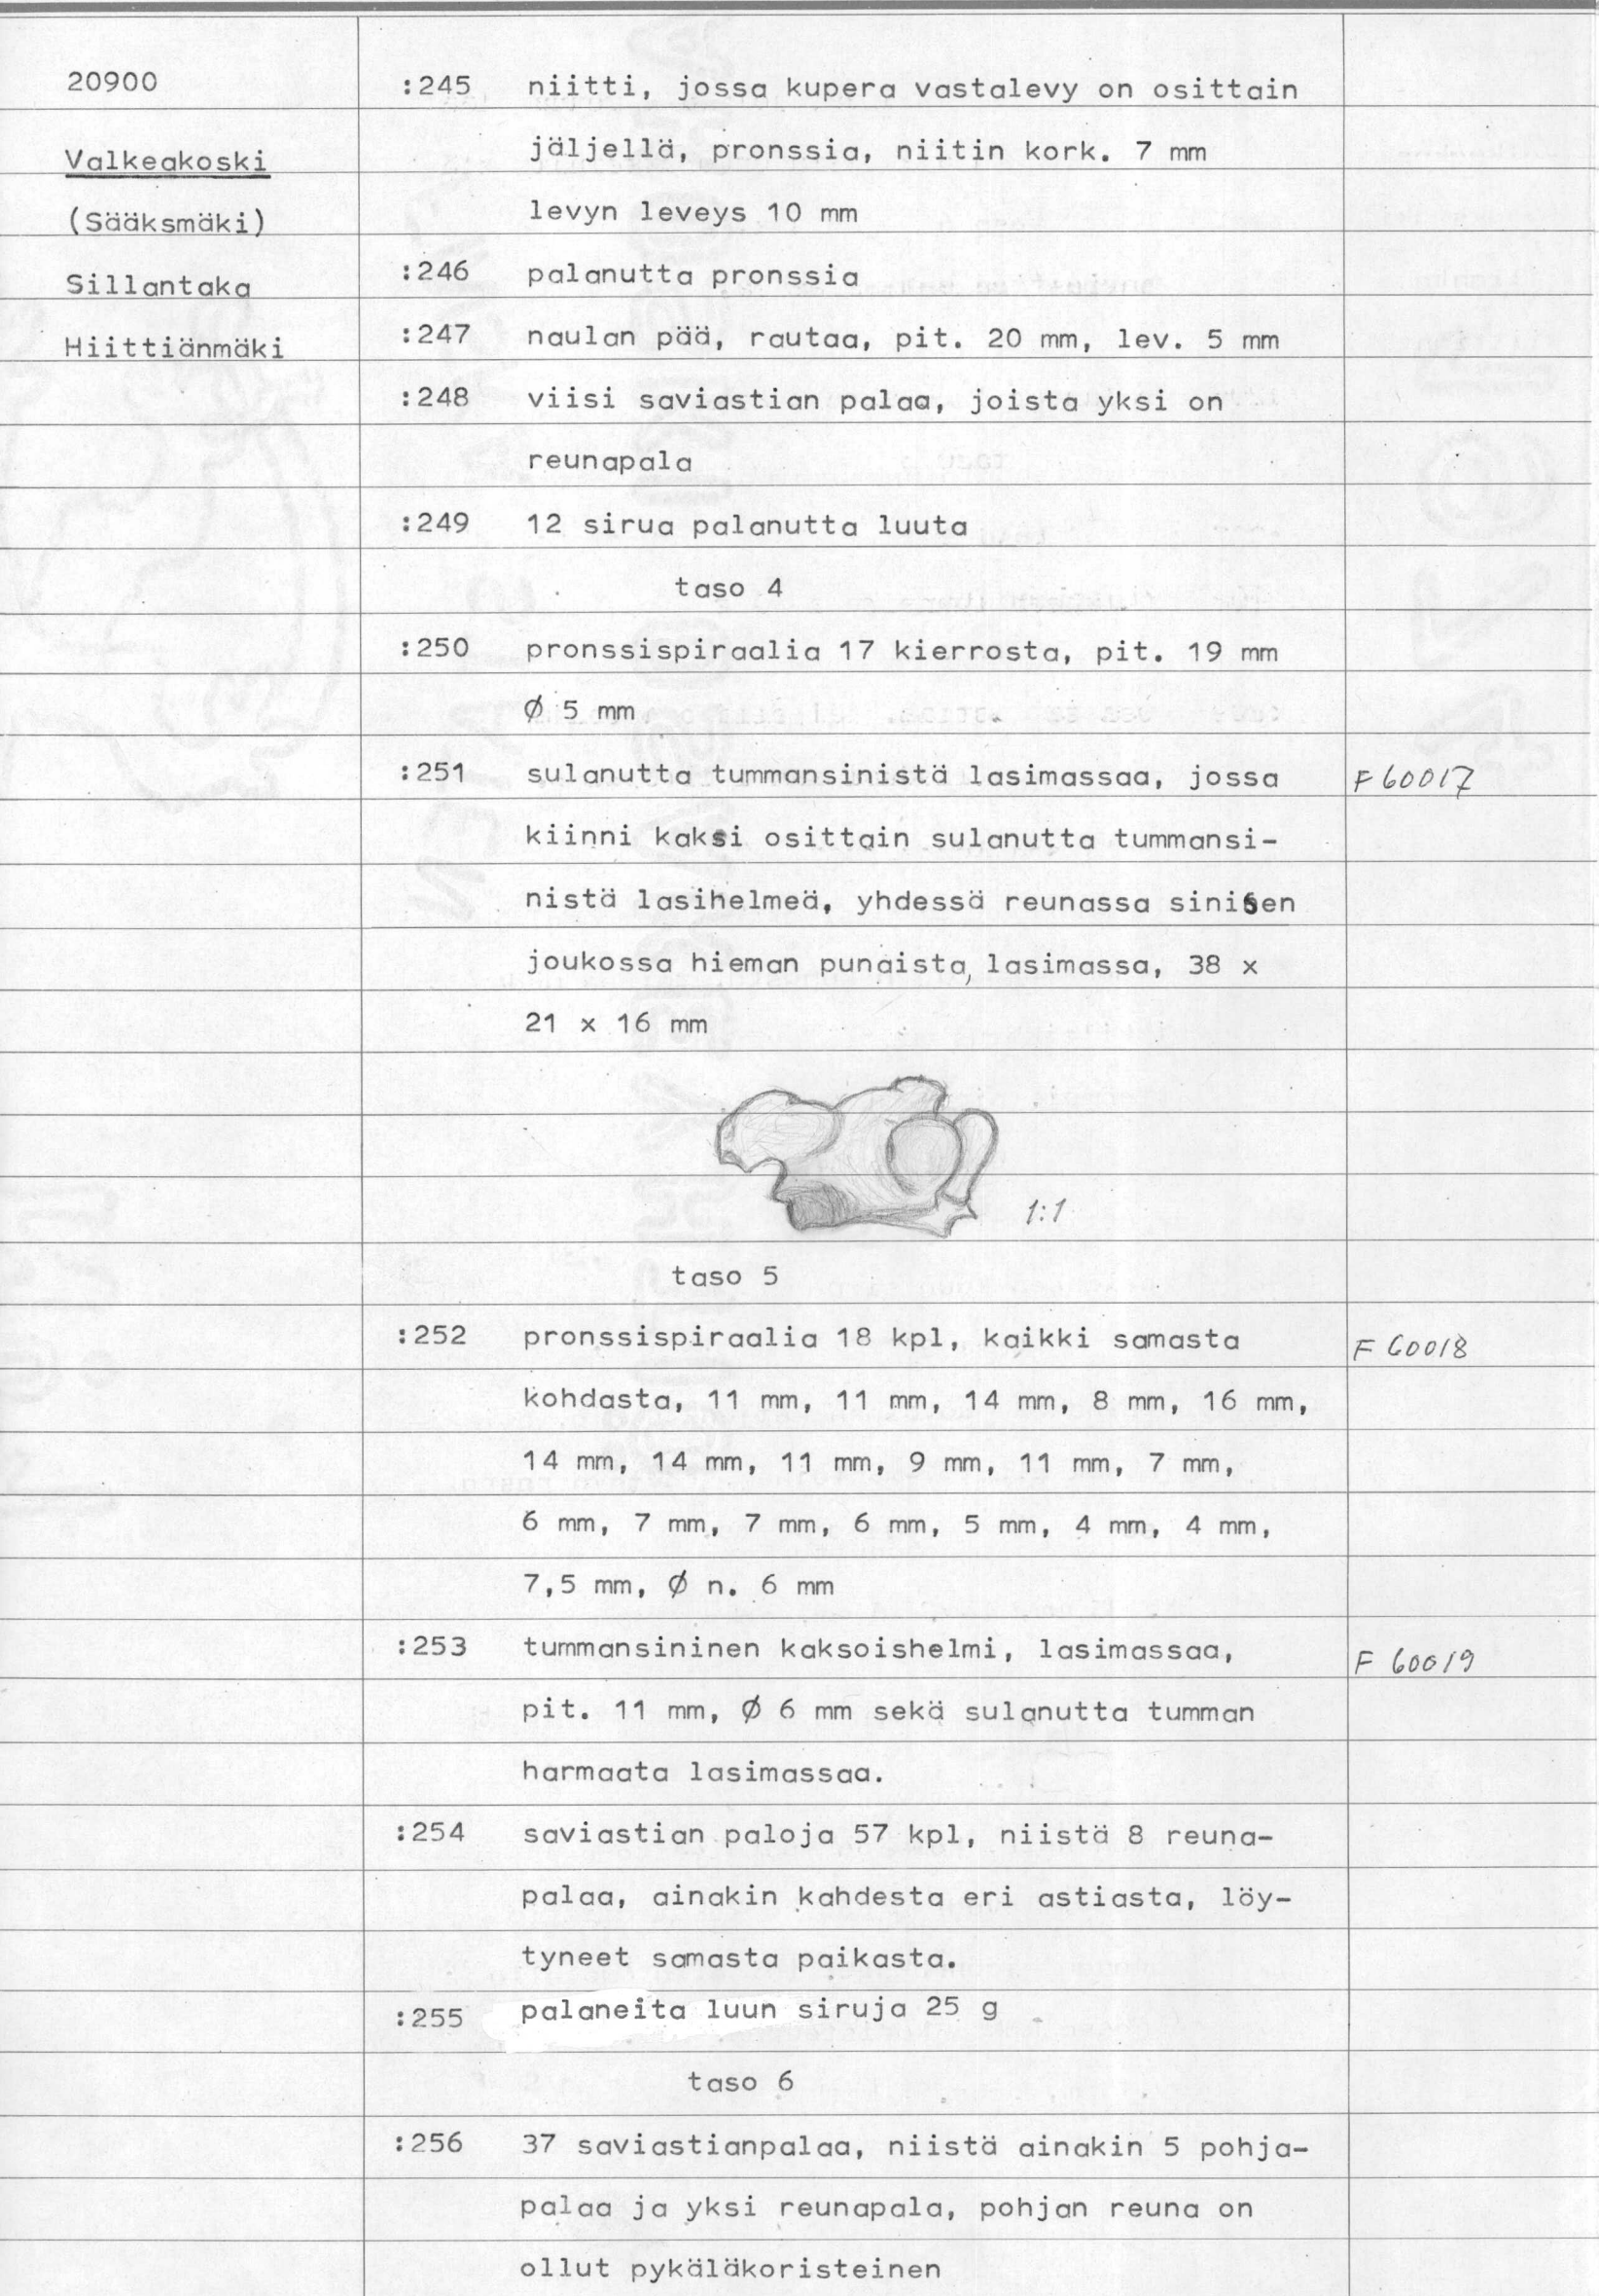 20900
Valkeakoski
(Sääksmäki)
Sillantaka
Hiittiänmäki
:245 niitti, jossa kupera vastalevy on osittain
jäljellä, pronssia, niitin kork. 7 mm
levyn leveys 10 mm
:246 palanutta pronssia
:247 naulan pää, rautaa, pit. 20 mm, lev. 5 mm
:248 viisi saviastian palaa, joista yksi on
reunapala
:249 12 sirua palanutta luuta
taso 4
:250 pronssispiraalia 17 kierrosta, pit. 19 mm
Ø 5 mm
:251 sulanutta tummansinistä lasimassaa, jossa F 60017
kiinni kaksi osittain sulanutta tummansi-
nistä lasihelmeä, yhdessä reunassa sinisen
joukossa hieman punaista, lasimassa, 38 x
21 x 16 mm
1:1
taso 5
:252 pronssispiraalia 18 kpl, kaikki samasta F 60018
kohdasta, 11 mm, 11 mm, 14 mm, 8 mm, 16 mm,
14 mm, 14 mm, 11 mm, 9 mm, 11 mm, 7 mm,
6 mm, 7 mm, 7 mm, 6 mm, 5 mm, 4 mm, 4 mm,
7,5 mm, Ø n. 6 mm
:253 tummansininen kaksoishelmi, lasimassaa, F 60019
pit. 11 mm, Ø 6 mm sekä sulanutta tumman
harmaata lasimassaa.
:254 saviastian paloja 57 kpl, niistä 8 reuna-
palaa, ainakin kahdesta eri astiasta, löy-
tyneet samasta paikasta.
:255 palaneita luun siruja 25 g
taso 6
:256 37 saviastianpalaa, niistä ainakin 5 pohja-
palaa ja yksi reunapala, pohjan reuna on
ollut pykäläkoristeinen